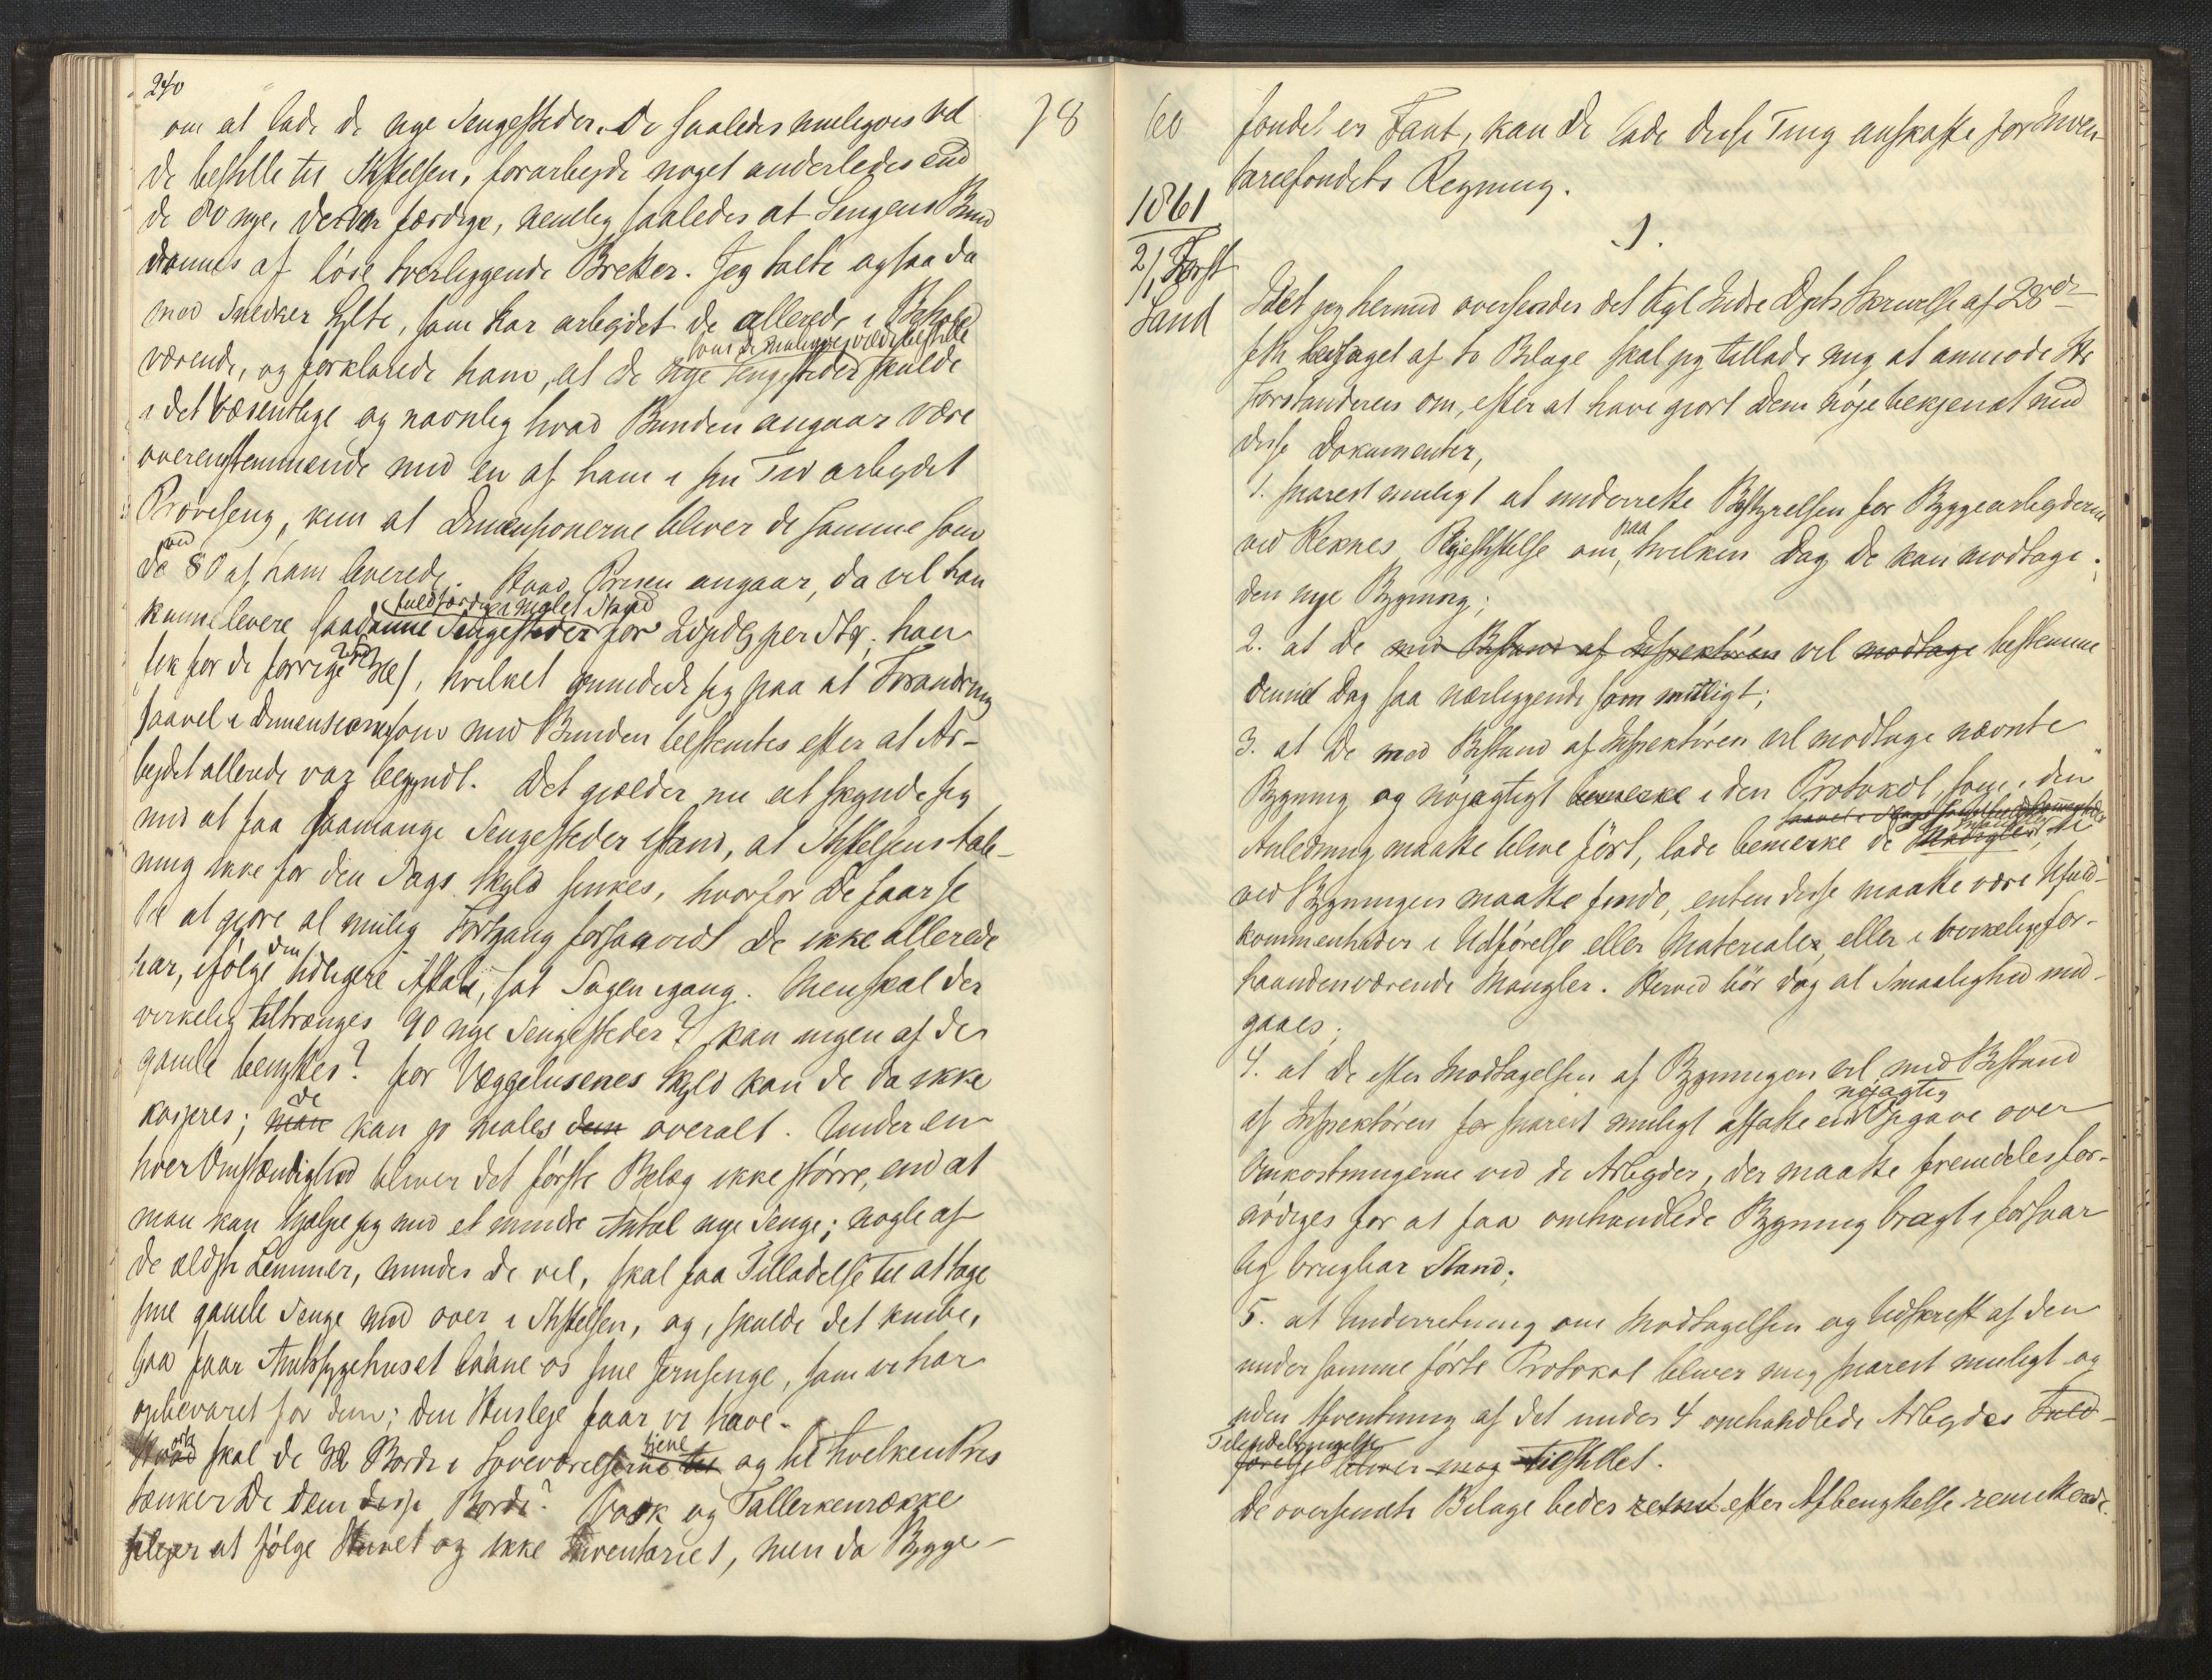 240
om at lade de nye Sengesteder, De saaledes muligvis vil
78
de bestille til Stiftelsen, forarbeyde noget anderledes end
de 80 nye, der var færdige, nemlig saaledes at Sengens Bund
dannes af löse tverliggende Bretter. Jeg talte ogsaa da
med Snedker Hylte, som har arbeydet de allerede i Behold
som De muligvis vilde bestille
værende, og forklarede ham, at de nye Sengesteder skulde
i det Væsentlige og navnlig hvad Bunden angaar være
overensstemmende med en af ham i sin Tid arbeydet
Pröveseng, kun at Dimensionerne bliver de samme som
ved
de 80 af ham leverede. Hvad Prisen angaar, da vil han
fuldfærdige i malet Stand
kunne levere saadanne Sengesteder for 2 Spdlr per Stk; han
fik for de forrige , hvilket grundede sig paa at Forandring
saavel i Dimensionerne som med Bunden bestemtes efter at Ar-
beydet allerede var begyndt. Det gjælder nu at skynde sig
med at faa saamange Sengesteder istand, at Stiftelsens Aab-
ning ikke for den Sags Skyld sinkes, hvorfor De faar se
til at gjøre al mulig Fortgang forsaavidt De ikke allerede
den
har, ifølge tidligere Aftale, sat Sagen igang. Men skal der
virkelig tiltrænges 90 nye Sengesteder? kan ingen af de
gamle benyttes? for Væggelusenes Skyld kan de da ikke
de
kasseres; man kan jo males dem overalt. Under en-
hver Omstændighed bliver det første Belæg ikke större, end at
man kan hjælpe sig med et mindre Antal nye Senge; nogle af
de ældste Lemmer, mindes De vel, skal faa Tilladelse til at tage
sine gamle Senge med over i Stiftelsen, og, skulde det knibe,
saa faar Amtssygehuset laane os sine Jernsenge, som vi har
opbevaret for dem; den Husleje faar vi have.
tjene
Hvad skal de 32 Borde i Soveværelserne til og til hvilken Pris
tænker De Dem disse Borde? Vask og Tallerkenrække
plejer at følge Huset og ikke Inventariet, men da Bygge-
60
fondet er Tant, kan De lade disse Ting anskaffe for Inven-
tariefondets Regning.
1861
2/1 Forst
Sand
1.
Idet jeg hermed oversender det Kgl Indre Dpts Skrivelse af 28de
f. M. ledsaget af to Bilage skal jeg tillade mig at anmode Hr
Forstanderen om, efter at have gjort Dem nöje bekjendt med
disse Dokumenter,
1. snarest muligt at underrette Bestyrelsen for Byggearbeyderne
paa
ved Reknes Plejestiftelse om, hvilken Dag De kan modtage
den nye Bygning;
2. at De med Bistand af Inspektören vil modtage bestemme
denne Dag saa nærliggende som muligt;
3. at De med Bistand af Inspektören vil modtage nævnte
Bygning og nöjagtigt bemerke i den Protokol, som i den
Anledning maatte blive fört, lade bemerke de Mangler, De
ved Bygningen maatte finde, enten disse maatte være Ufuld-
kommenheder i Udförelse eller Materialer, eller i virkelige for-
haandenværende Mangler. Herved bör dog al Smaalighed und-
gaaes;
4. at De efter Modtagelsen af Bygningen vil med Bistand
nöjagtig
af Inspektören for snarest muligt affatte en Opgave over
Omkostningerne ved de Arbeyder, der maatte fremdeles for-
nödiges for at faa omhandlede Bygning bragt i forsvar
lig brugbar Stand;
5. at Underretning om Modtagelsen og Udskrift af den
under samme förte Protokol bliver mig snarest muligt og
uden Afventning af det under 4 omhandlede Arbeydes Fuld-
Tilendebringelse
förelse bliver mig tilstillet.
De oversendte Bilage bedes retur efter Afbenyttelse remitterede.